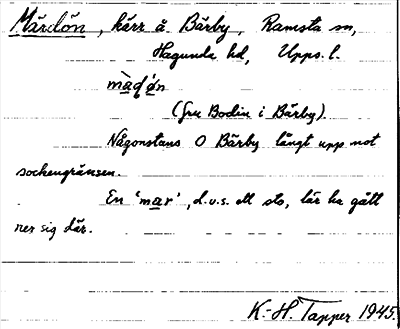 Märdön, kärr å Bärby, Ramsta sn,
Hagunda hd, Upps. l.
(fru Bodin i Bärby).
Någonstans O Bärby långt upp mot
sockengränsen.
En 'mar', d.v.s. ett sto, lär ha gått
ner sig där.
K.-H. Tapper 1945.